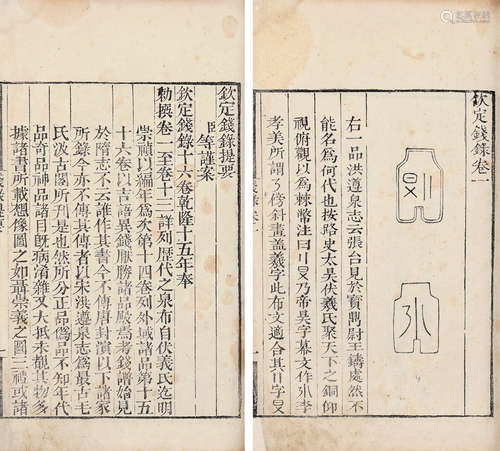 欽定錢錄提要
臣等謹案
欽定錢錄十六卷乾隆十五年奉
勅撰卷一至卷十三詳列歷代之泉布自伏羲氏迄明
崇禎以編年為次第十四卷列外域諸品第十五
十六卷以吉語異錢厭勝諸品殿焉考錢譜始見
於隋志不云誰作其書今不傳唐封演以下諸家
所錄今亦不傳其傳者以宋洪遵泉志為最古毛
氏汲古閣所刊是也然所分正品為品不知年代
品奇品神品諸目旣病淆雜又大抵未覩其物多
據諸書所載想像圖之如聶崇義之圖三禮或諸
欽定錢錄卷一
右一品洪遵泉志云張台見於寶鼎尉王鑄處然不
能名為何代也按路史太昊伏羲氏聚天下之銅仰
視俯觀以為棘幣注曰乃帝昊字幕文作李
孝美所謂了傍斜畫盖羲字此布文適合其